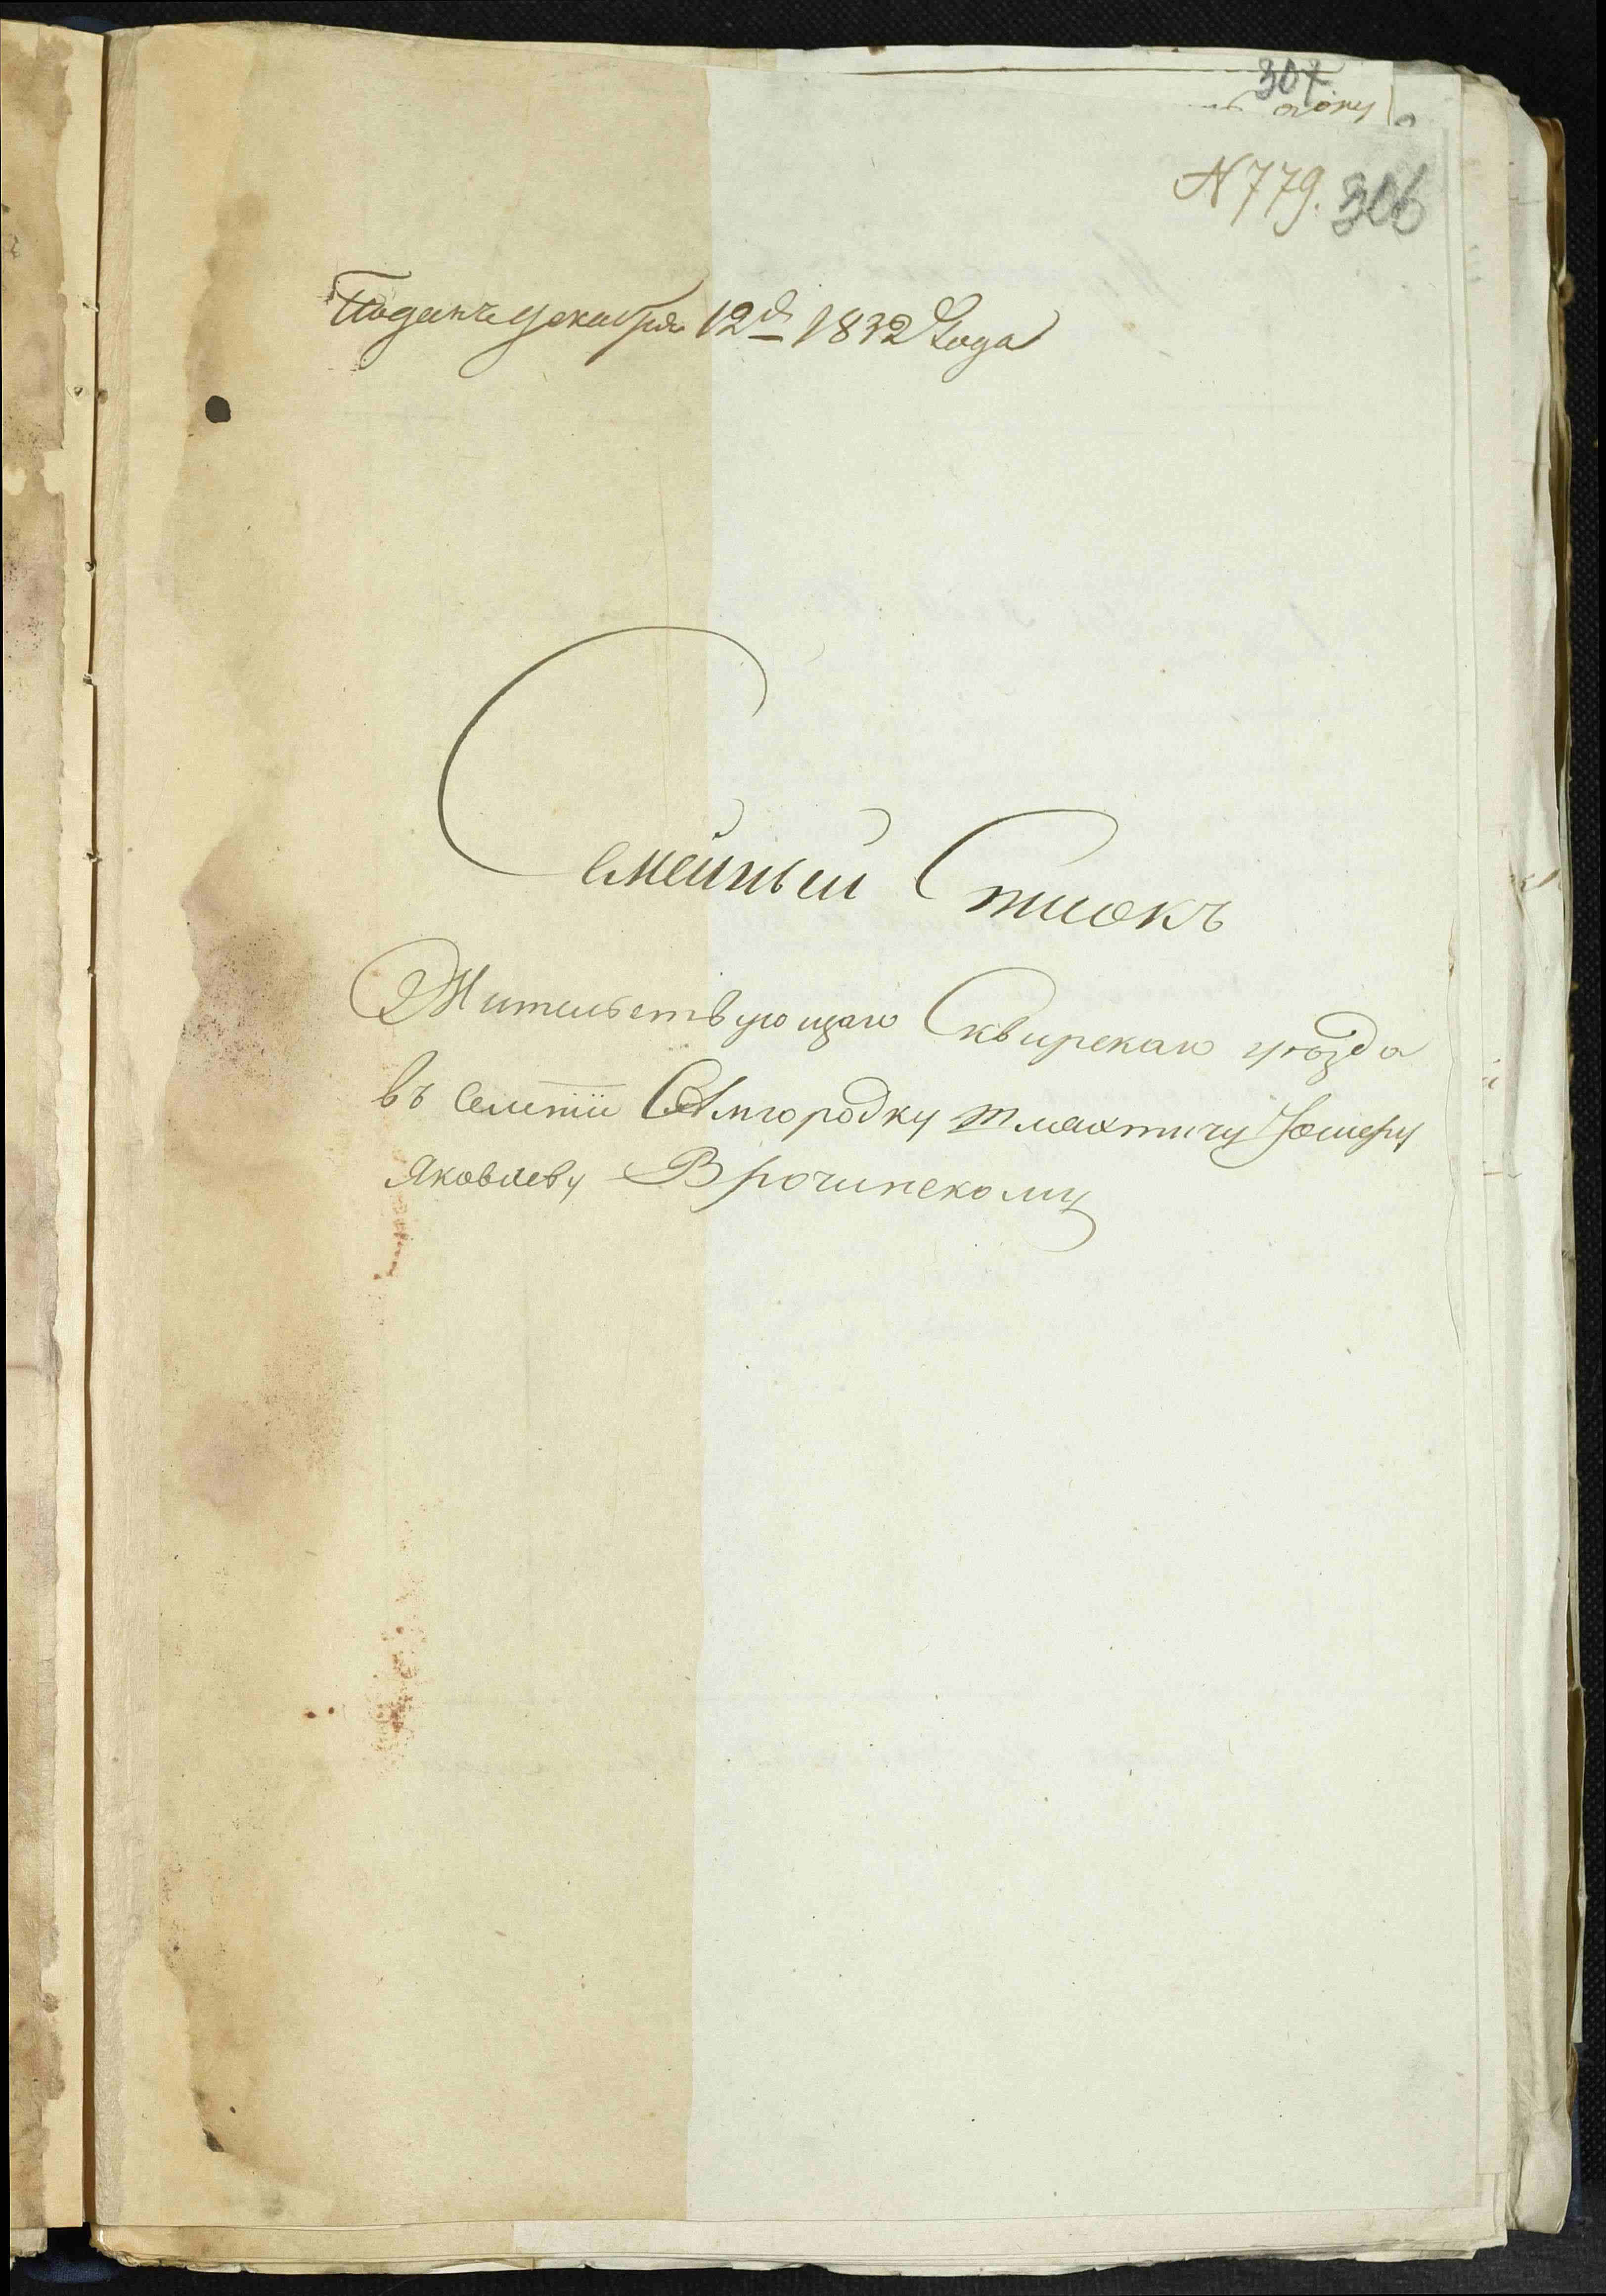 307
N 779. 306
Поданъ декабря 12д 1832 Года
Семейный Списокъ
Жительствующаго Сквирскаго уѣзда
въ селеніи Самгородку шляхтичу
Яковлеву Врочинскому